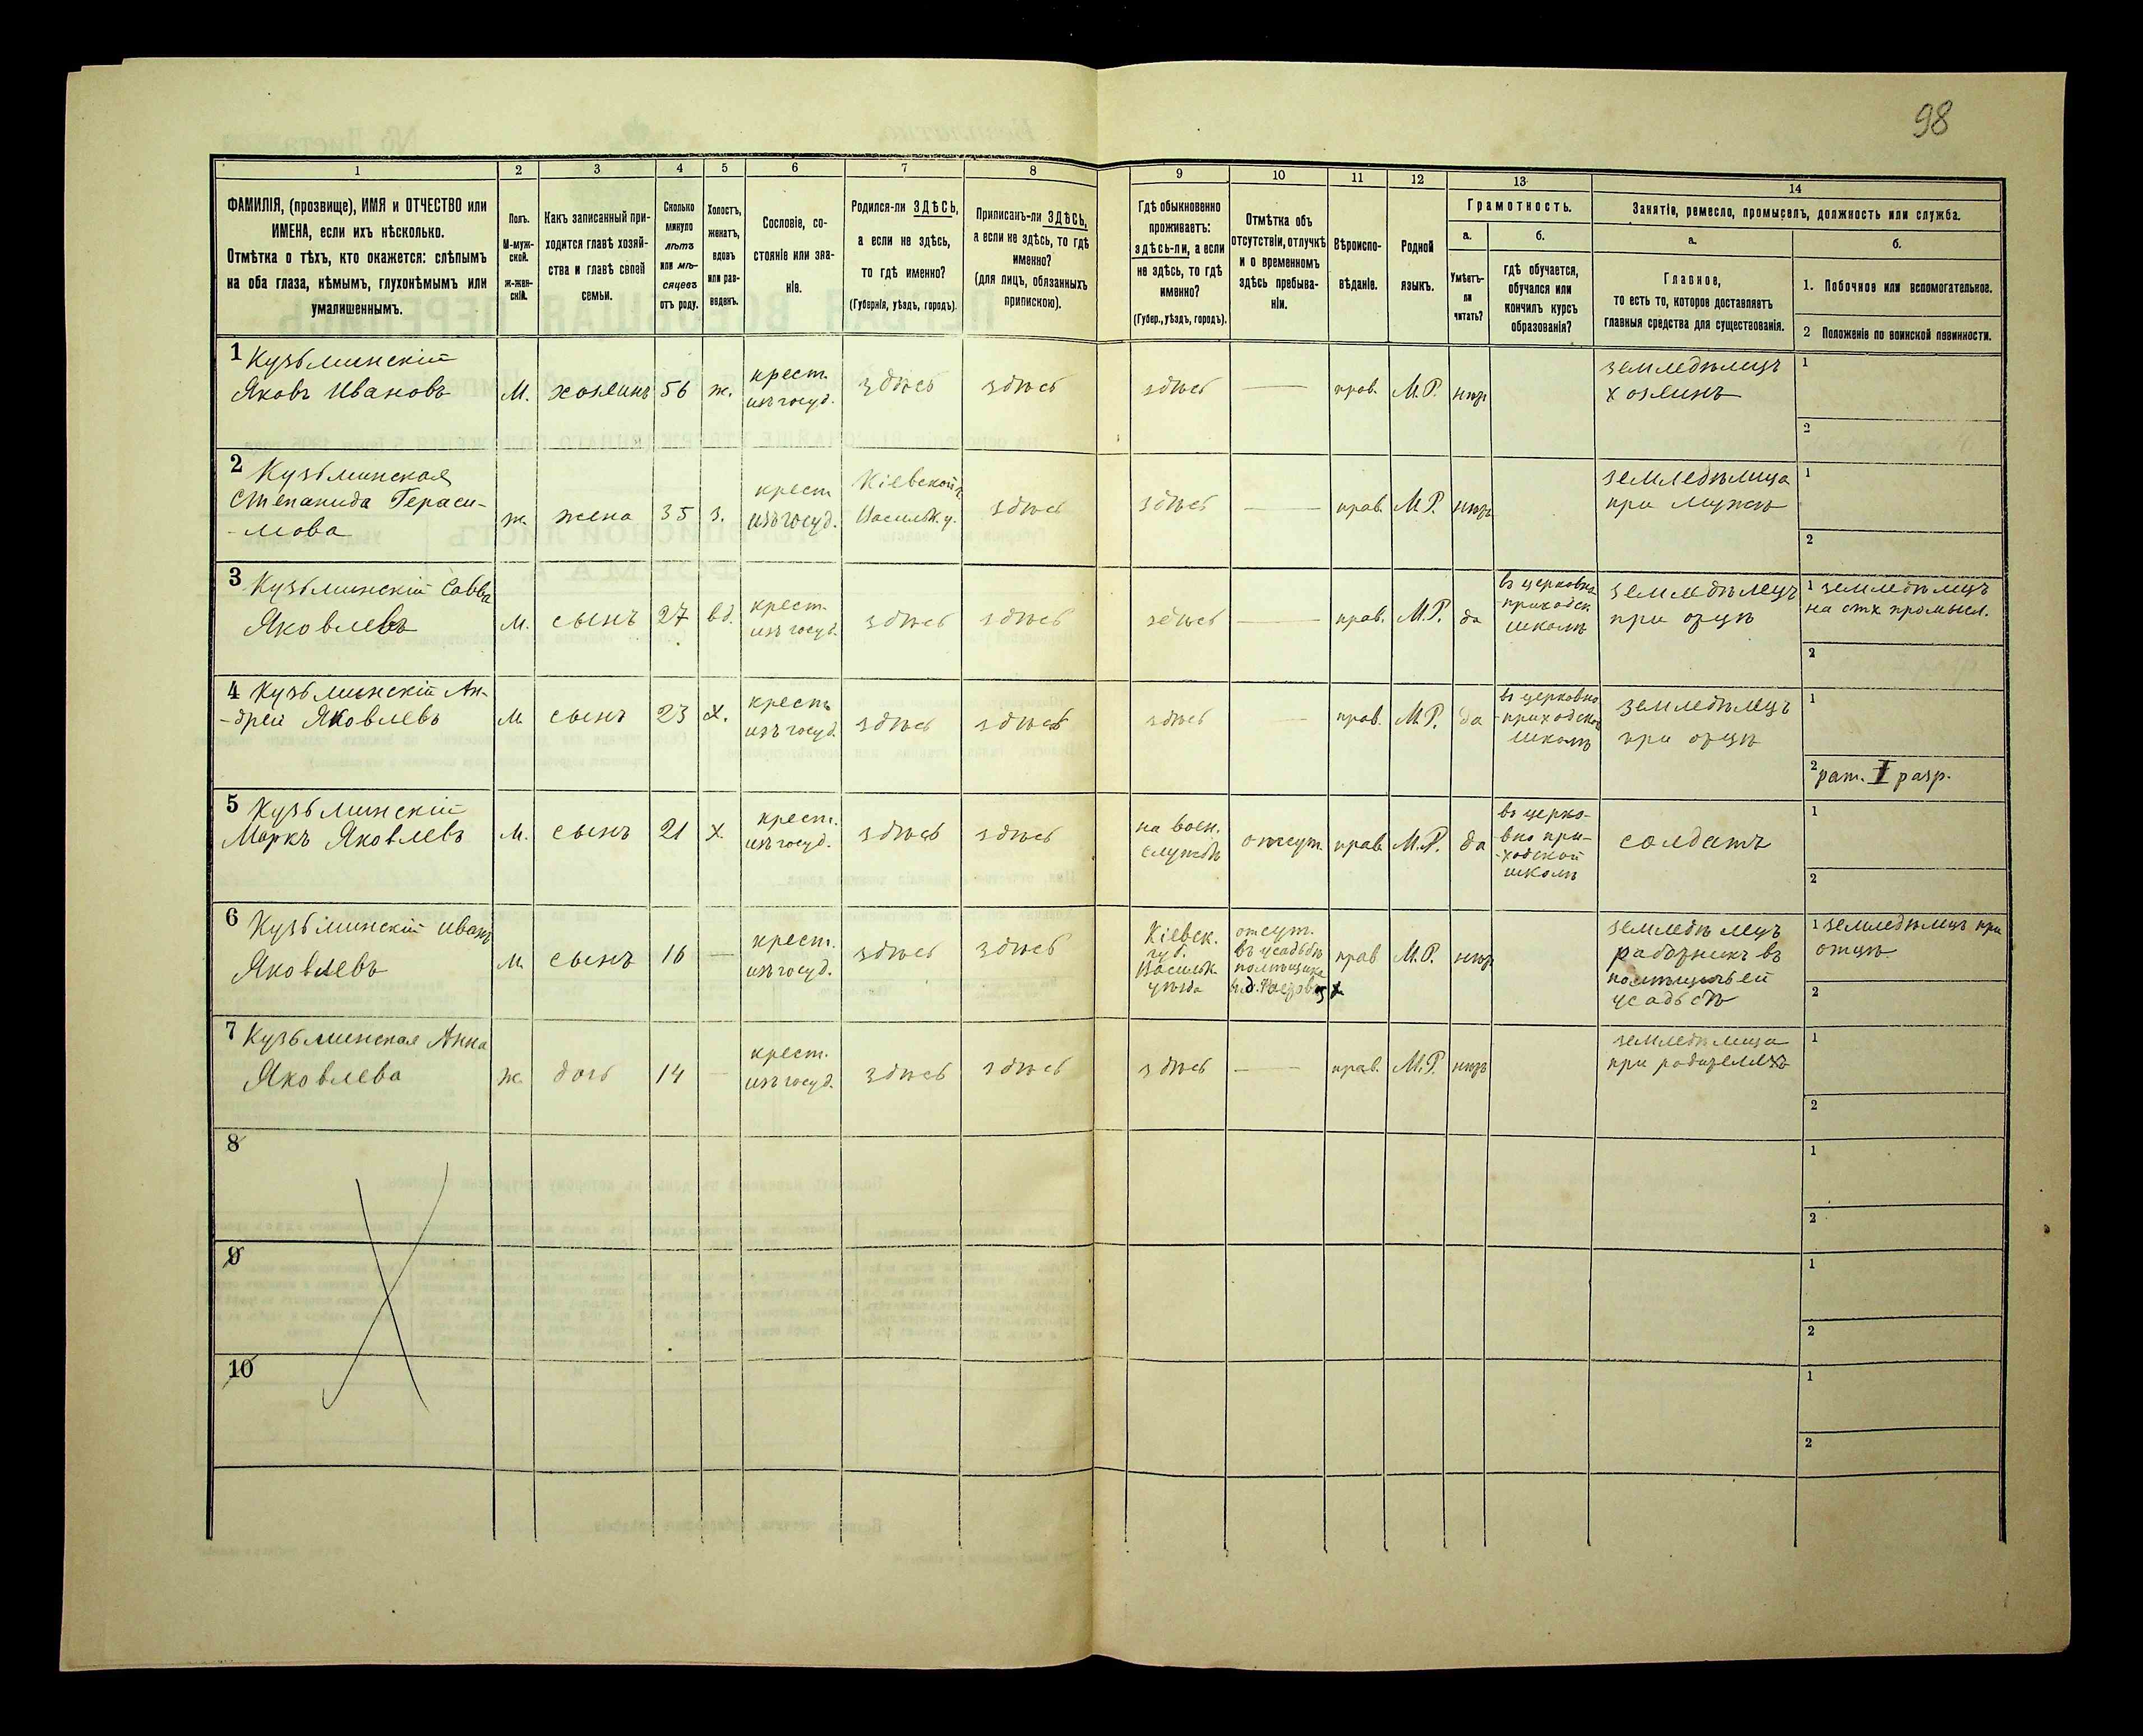 98
1
2
3
4
5
6
7
8
9
10
11
12
13
14
ФАМИЛІЯ, (прозвище), ИМЯ и ОТЧЕСТВО или
ИМЕНА, если ихъ нѣсколько.
Отмѣтка о тѣхъ, кто окажется: слѣпымъ
на оба глаза, нѣмымъ, глухонѣмымъ или
умалишеннымъ.
Полъ.
М-муж-
ской.
ж-жен-
скій.
Какъ записанный при-
ходится главѣ хозяй-
ства и главѣ своей
семьи.
Сколько
минуло
лѣтъ
или мѣ-
сяцевъ
отъ роду.
Холостъ,
женатъ,
вдовъ
или раз-
веденъ.
Сословіе, со-
стояніе или зва-
ніе.
Родился-ли ЗДѢСЬ,
а если не здѣсь,
то гдѣ именно?
(Губернія, уѣздъ, городъ).
Приписанъ-ли ЗДѢСЬ,
а если не здѣсь, то гдѣ
именно?
(для лицъ, обязанныхъ
припискою).
Гдѣ обыкновенно
проживаетъ:
здѣсь-ли, а если
не здѣсь, то гдѣ
именно?
(Губер., уѣздъ, городъ).
Отмѣтка объ
отсутствіи, отлучкѣ
и о временномъ
здѣсь пребыва-
ніи.
Вѣроиспо-
вѣданіе.
Родной
языкъ.
Грамотность.
а.
Умѣетъ-
ли
читать?
б.
гдѣ обучается,
обучался или
кончилъ курсъ
образованія?
Занятіе, ремесло, промыселъ, должность или служба.
а.
Главное,
то есть то, которое доставляетъ
главныя средства для существованія.
б.
1. Побочное или вспомогательное.
2 Положеніе по воинской повинности.
1 Кузьминскій
Яковъ Ивановъ
М.
хозяинъ
56
ж.
крест.
изъ госуд.
здѣсь
здѣсь
здѣсь
прав.
М.Р.
нѣтъ
земледѣлецъ
хозяинъ
1
2
2 Кузьминская
Степанида Гераси-
-мова
ж.
жена
35
з.
крест
изъ госуд.
Кіевской г.
Васильк. у.
здѣсь
здѣсь
прав.
М.Р.
нѣтъ
земледѣлица
при мужѣ
1
2
3 Кузьминскій Савва
Яковлевъ
М.
сынъ
27
вд.
крест.
изъ госуд.
здѣсь
здѣсь
здѣсь
прав.
М.Р.
да
въ церковно
-приходск.
школѣ
земледѣлецъ
при отцѣ
1 земледѣлецъ
на отх промысл.
2
4 Кузьминскій Ан-
-дрей Яковлевъ
М
сынъ
23
х.
крестъ
изъ госуд.
здѣсь
здѣсь
здѣсь
прав.
М.Р.
да
въ церковно
-приходской
школѣ
земледѣлецъ
при отцѣ
1
2 рат. I разр.
5 Кузьминскій
Маркъ Яковлевъ
М.
сынъ
21
х.
крест.
изъ госуд.
здѣсь
здѣсь
на воен.
службѣ
отсут.
прав.
М.Р.
да
въ церко-
вно при-
-ходской
школѣ
солдатъ
1
2
6 Кузьминскій Иванъ
Яковлевъ
М.
сынъ
16
крест.
изъ госуд.
здѣсь
здѣсь
Кіевск.
губ.
Васильк.
уѣзда
отсут.
въ усадьбѣ
помѣщика
прав
М.Р.
нѣтъ
земледѣлецъ
работникъ въ
помѣщичьей
усадьбѣ
1 земледѣлецъ при
отцѣ
2
7 Кузьминская Анна
Яковлева
ж.
дочь
14
крест.
изъ госуд.
здѣсь
здѣсь
здѣсь
прав.
М.Р.
нѣтъ
земледѣлица
при родителяхъ
1
2
8
1
2
9
1
2
10
1
2